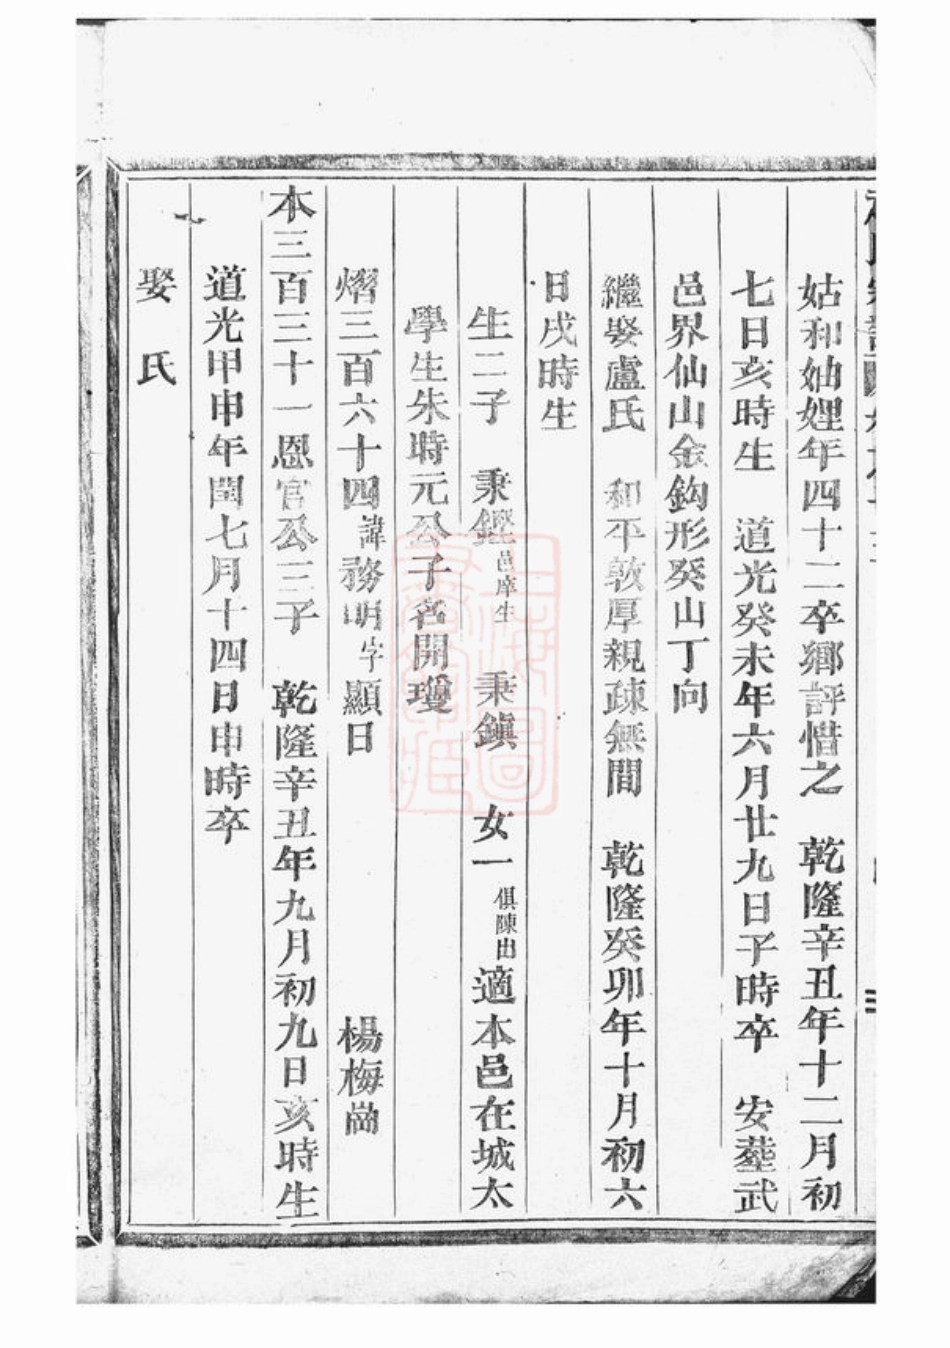 姑和妯娌年四十二卒鄉評惜之　乾隆辛丑年十二月初
七日亥時生　道光癸未年六月廿九日子時卒　安葬武
邑界仙山金鈎形癸山丁向
繼娶盧氏　和平敦厚親疎無間　乾隆癸卯年十月初六
日戌時生
生二子　秉鏗邑庠生　秉鎮　女一俱陳出適本邑在城太
學生朱時元公子名開瓊
熠三百六十四諱務明字顯日　楊梅崗
本三百三十一恩官公三子　乾隆辛丑年九月初九日亥時生
道光甲申年閏七月十四日申時卒
娶　氏